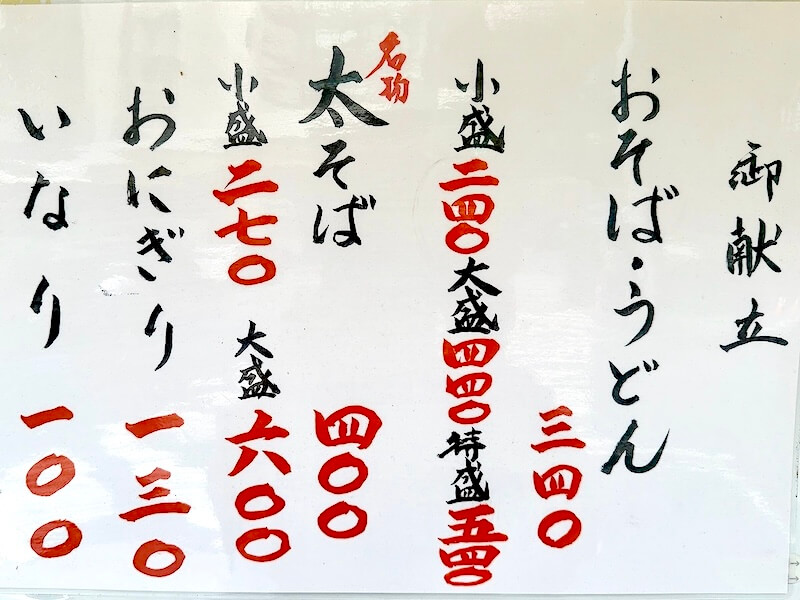 御献立
おそば・うどん
三四〇
小盛二四〇大盛四四〇特盛五四〇
名物
太そば四〇〇
小盛二七〇大盛六〇〇
おにぎり一三〇
いなり一〇〇